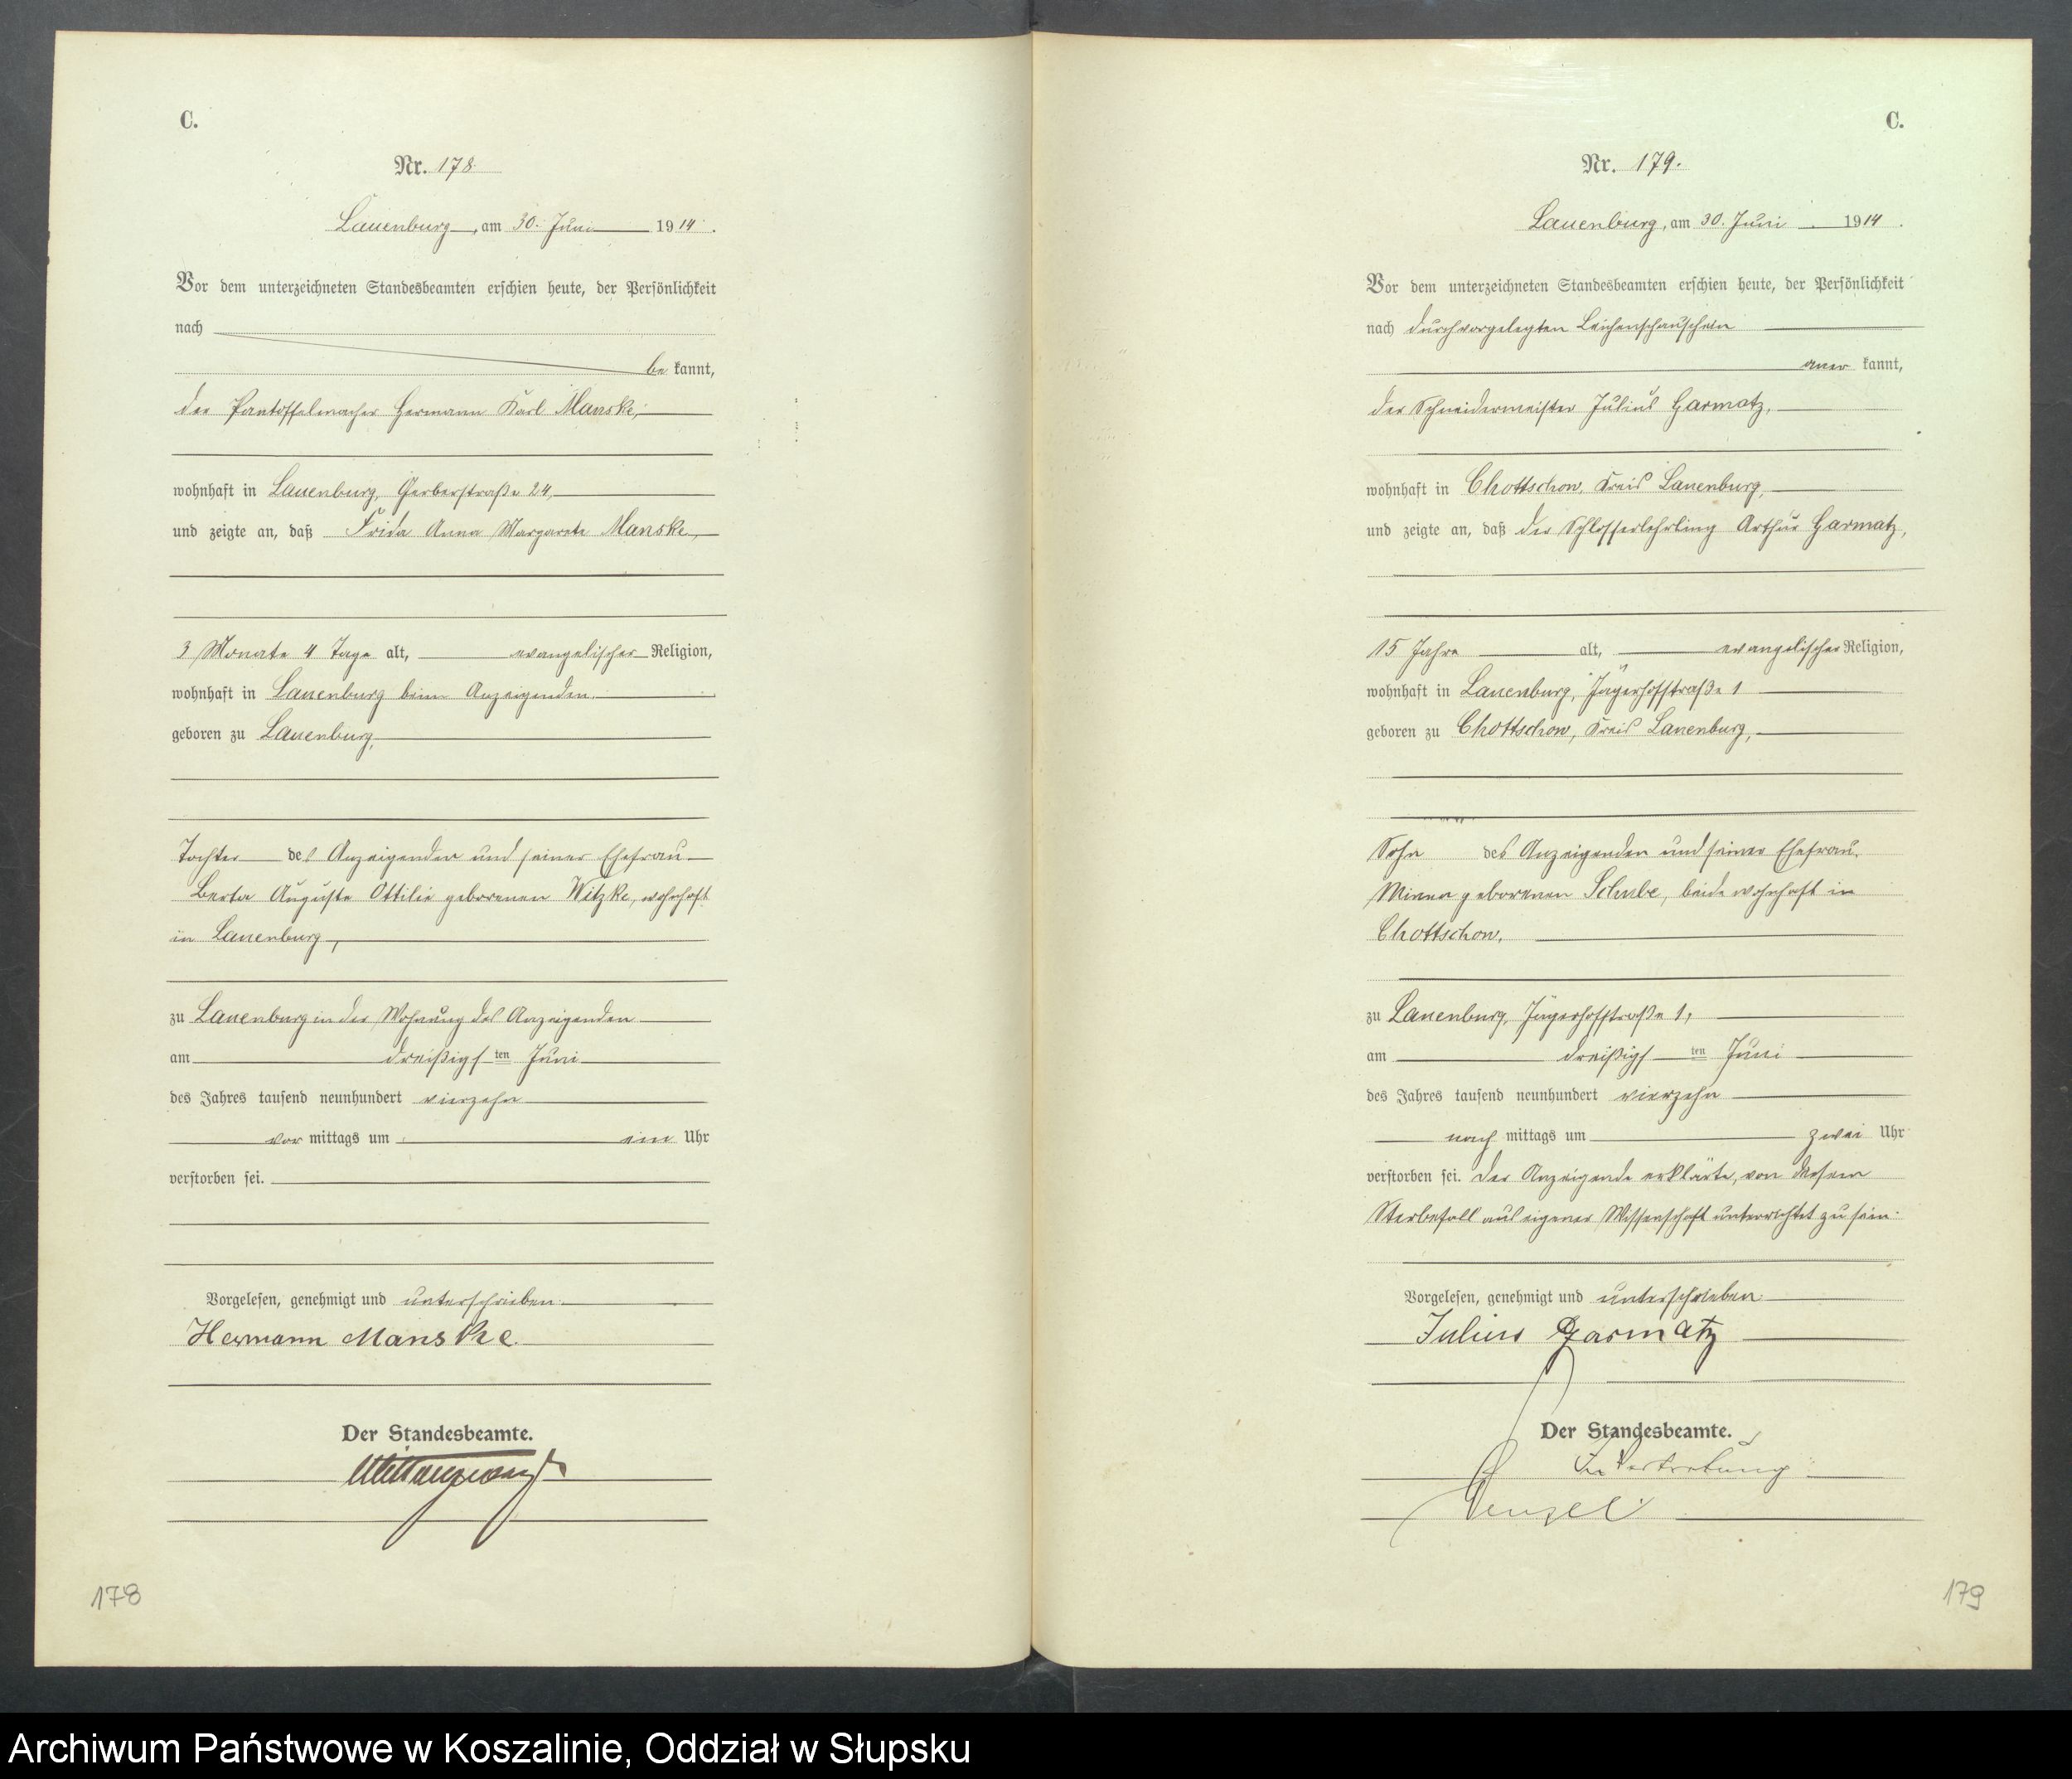 C.
Nr. 178.
Lauenburg, am 30. Juni 1914.
Vor dem unterzeichneten Standesbeamten erschien heute, der Persönlichkeit
nach
be kannt,
der Pantoffelmacher Hermann Karl Manske,
wohnhaft in Lauenburg, Gerberstraße 24,
und zeigte an, daß Frida Anna Margarete Manske,
3 Monate 4 Tage alt, evangelischer Religion,
wohnhaft in Lauenburg beim Anzeigenden,
geboren zu Lauenburg,
Tochter des Anzeigenden und seiner Ehefrau
Berta Auguste Ottilie geborenen Witzke, wohnhaft
in Lauenburg,
zu Lauenburg in der Wohnung des Anzeigenden
am dreißigsten Juni
des Jahres tausend neunhundert vierzehn
vor mittags um ein Uhr
verstorben sei.
Vorgelesen, genehmigt und unterschrieben.
Hermann Manske.
Der Standesbeamte.
178
C.
Nr. 179.
Lauenburg, am 30. Juni 1914.
Vor dem unterzeichneten Standesbeamten erschien heute, der Persönlichkeit
nach durch vorgelegten Leichenschauschein
aner kannt,
der Schneidermeister Julius Garmatz,
wohnhaft in Chottschow, Kreis Lauenburg,
und zeigte an, daß der Schlosserlehrling Arthur Garmatz,
15 Jahre alt, evangelischer Religion,
wohnhaft in Lauenburg, Jägerhofstraße 1
geboren zu Chottschow, Kreis Lauenburg,
Sohn des Anzeigenden und seiner Ehefrau,
Minna geborenen Schube, beide wohnhaft in
Chottschow,
zu Lauenburg, Jägerhofstraße 1,
am dreißigsten Juni
des Jahres tausend neunhundert vierzehn
nach mittags um zwei Uhr
verstorben sei. Der Anzeigende erklärte, von diesem
Sterbefall aus eigener Wissenschaft unterrichtet zu sein.
Vorgelesen, genehmigt und unterschrieben
Julius Garmatz
Der Standesbeamte.
In Vertretung:
179
Archiwum Państwowe w Koszalinie, Oddział w Słupsku